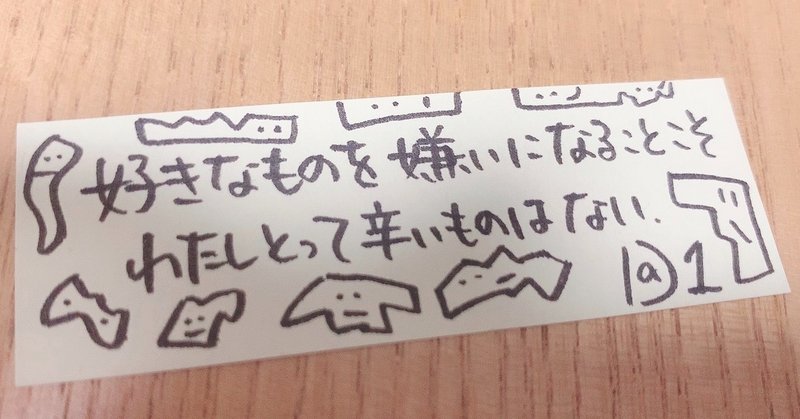 好きなものを嫌いになることこそ
わたしとって辛いものはない.
@1